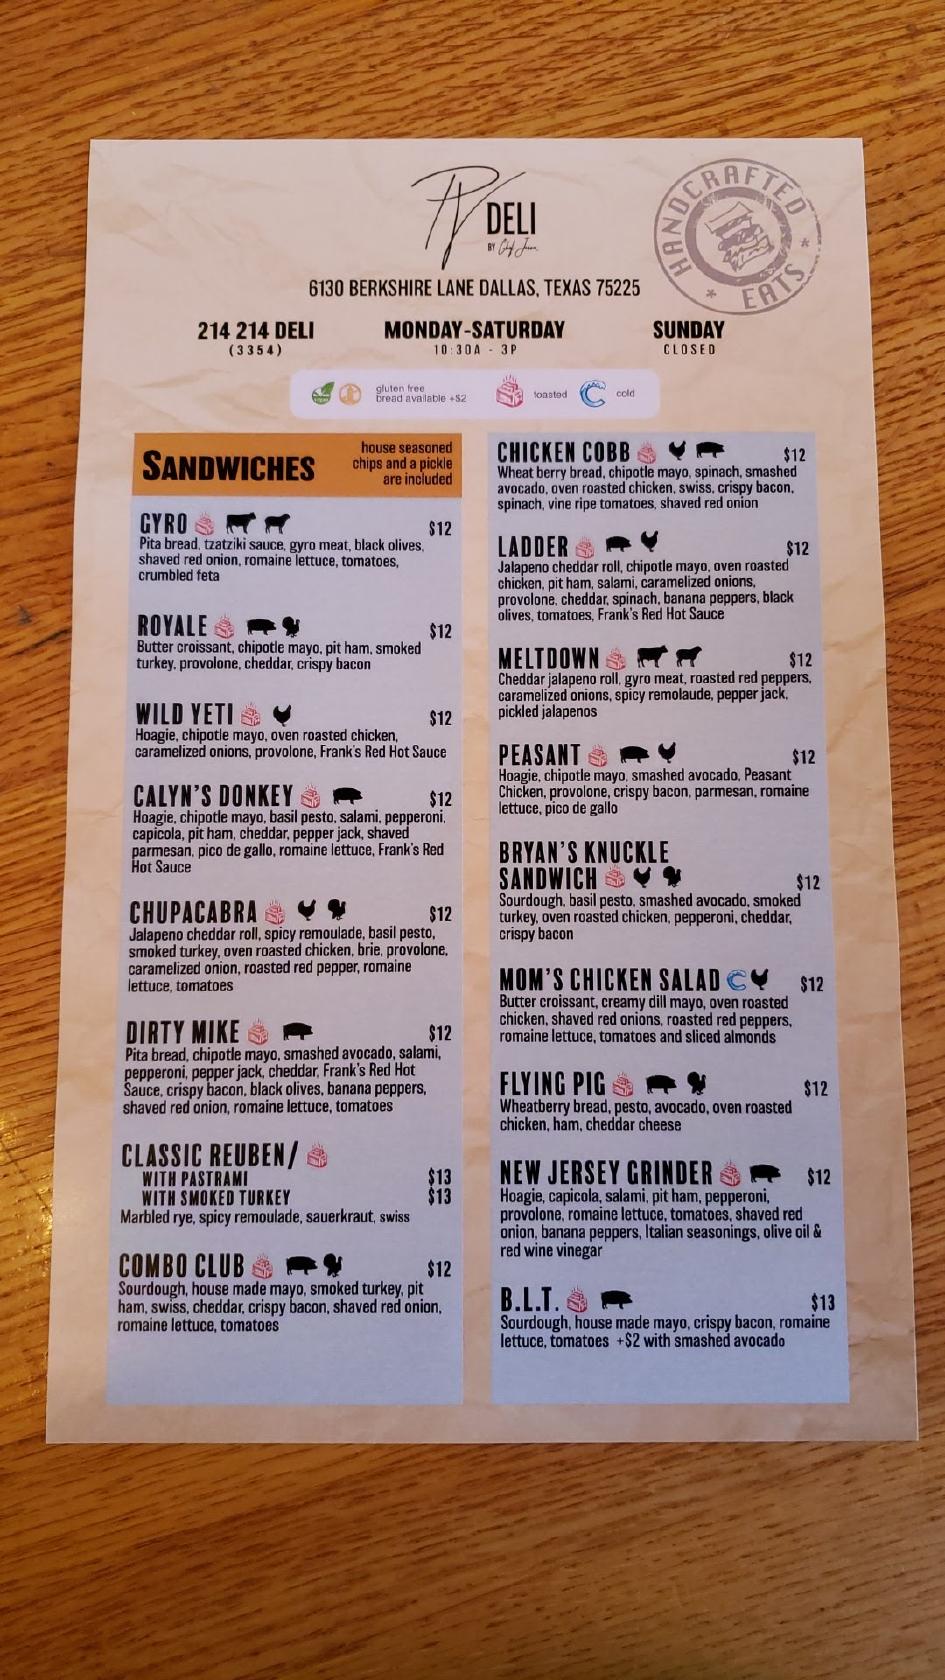 PV DELI
BY Chef Jason
HANDCRAFTED EATS
6130 BERKSHIRE LANE DALLAS, TEXAS 75225
214 214 DELI
(3354)
MONDAY-SATURDAY
10:30A - 3P
SUNDAY
CLOSED
gluten free
bread available +$2
toasted
cold
SANDWICHES
house seasoned
chips and a pickle
are included
GYRO $12
Pita bread, tzatziki sauce, gyro meat, black olives,
shaved red onion, romaine lettuce, tomatoes,
crumbled feta
ROYALE $12
Butter croissant, chipotle mayo, pit ham, smoked
turkey, provolone, cheddar, crispy bacon
WILD YETI $12
Hoagie, chipotle mayo, oven roasted chicken,
caramelized onions, provolone, Frank's Red Hot Sauce
CALYN'S DONKEY $12
Hoagie, chipotle mayo, basil pesto, salami, pepperoni,
capicola, pit ham, cheddar, pepper jack, shaved
parmesan, pico de gallo, romaine lettuce, Frank's Red
Hot Sauce
CHUPACABRA $12
Jalapeno cheddar roll, spicy remoulade, basil pesto,
smoked turkey, oven roasted chicken, brie, provolone,
caramelized onion, roasted red pepper, romaine
lettuce, tomatoes
DIRTY MIKE $12
Pita bread, chipotle mayo, smashed avocado, salami,
pepperoni, pepper jack, cheddar, Frank's Red Hot
Sauce, crispy bacon, black olives, banana peppers,
shaved red onion, romaine lettuce, tomatoes
CLASSIC REUBEN/
WITH PASTRAMI $13
WITH SMOKED TURKEY $13
Marbled rye, spicy remoulade, sauerkraut, swiss
COMBO CLUB $12
Sourdough, house made mayo, smoked turkey, pit
ham, swiss, cheddar, crispy bacon, shaved red onion,
romaine lettuce, tomatoes
CHICKEN COBB $12
Wheat berry bread, chipotle mayo, spinach, smashed
avocado, oven roasted chicken, swiss, crispy bacon,
spinach, vine ripe tomatoes, shaved red onion
LADDER $12
Jalapeno cheddar roll, chipotle mayo, oven roasted
chicken, pit ham, salami, caramelized onions,
provolone, cheddar, spinach, banana peppers, black
olives, tomatoes, Frank's Red Hot Sauce
MELTDOWN $12
Cheddar jalapeno roll, gyro meat, roasted red peppers,
caramelized onions, spicy remolaude, pepper jack,
pickled jalapenos
PEASANT $12
Hoagie, chipotle mayo, smashed avocado, Peasant
Chicken, provolone, crispy bacon, parmesan, romaine
lettuce, pico de gallo
BRYAN'S KNUCKLE
SANDWICH $12
Sourdough, basil pesto, smashed avocado, smoked
turkey, oven roasted chicken, pepperoni, cheddar,
crispy bacon
MOM'S CHICKEN SALAD $12
Butter croissant, creamy dill mayo, oven roasted
chicken, shaved red onions, roasted red peppers,
romaine lettuce, tomatoes and sliced almonds
FLYING PIG $12
Wheatberry bread, pesto, avocado, oven roasted
chicken, ham, cheddar cheese
NEW JERSEY GRINDER $12
Hoagie, capicola, salami, pit ham, pepperoni,
provolone, romaine lettuce, tomatoes, shaved red
onion, banana peppers, Italian seasonings, olive oil &
red wine vinegar
B.L.T. $13
Sourdough, house made mayo, crispy bacon, romaine
lettuce, tomatoes +$2 with smashed avocado